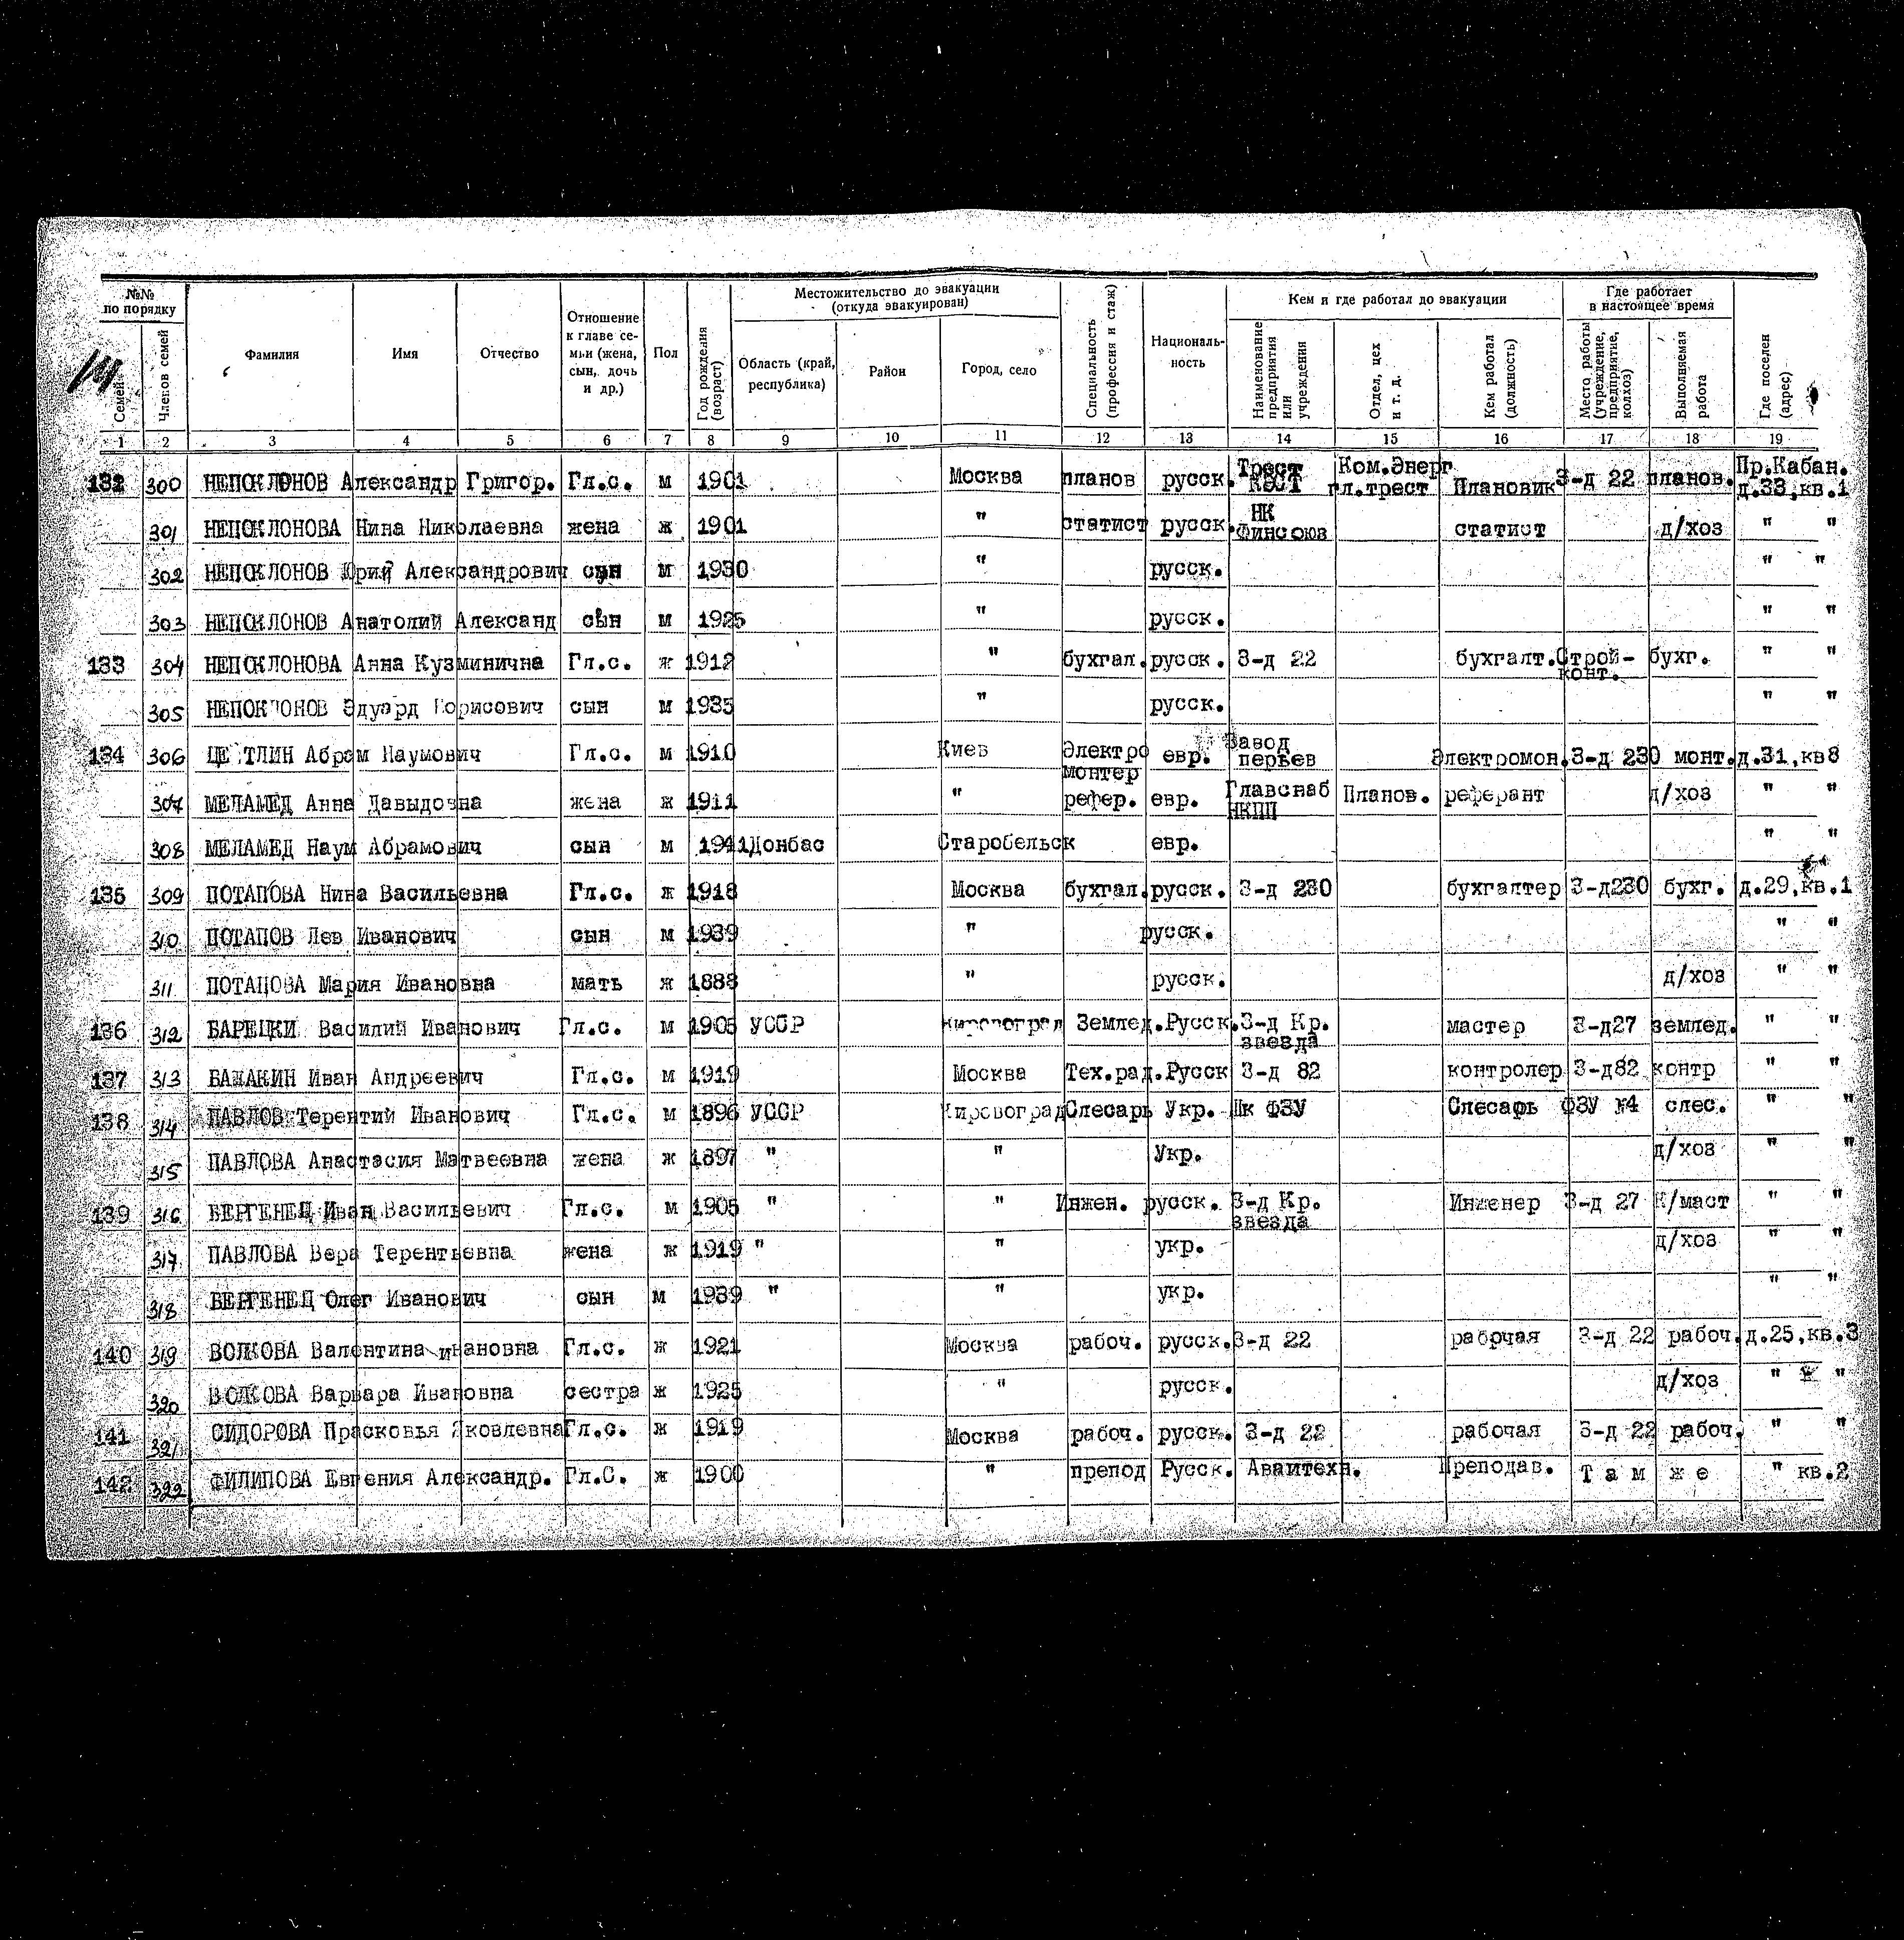 №№ по порядку
Семей
Членов семей
Фамилия
Имя
Отчество
Отношение к главе семьи (жена, сын, дочь и др.)
Пол
Год рождения (возраст)
Местожительство до эвакуации (откуда эвакуирован)
Область (край, республика)
Район
Город, село
Специальность (профессия и стаж)
Национальность
Кем и где работал до эвакуации
Наименование предприятия или учреждения
Отдел, цех и т. д.
Кем работал (должность)
Где работает в настоящее время
Место работы (учреждение, предприятие, колхоз)
Выполняемая работа
Где поселен (адрес)
1 2 3 4 5 6 7 8 9 10 11 12 13 14 15 16 17 18 19
132 300 НЕПОКЛОНОВ Александр Григор. Гл.с. м 1901 Москва планов русск. Трест Ком.Энерг гл.трест Плановик З-д 22 планов. Пр.Кабан. д.33,кв.1
301 НЕПОКЛОНОВА Нина Николаевна жена ж 1901 " статист русск. НК Финсоюз статист д/хоз " "
302 НЕПОКЛОНОВ Юрий Александрович сын м 1930 " русск. " "
303 НЕПОКЛОНОВ Анатолий Александ сын м 1925 " русск. " "
133 304 НЕПОКЛОНОВА Анна Кузминична Гл.с. ж 1912 " бухгал. русск. З-д 22 бухгалт. Строй-конт. бухг. " "
305 НЕПОКЛОНОВ Эдуард Борисович сын м 1935 " русск. " "
134 306 ЦЕ ТЛИН Абрам Наумович Гл.с. м 1910 Киев Электро монтер евр. Завод перьев Электромон. З-д 230 монт. д.31,кв8
307 МЕЛАМЕД Анна Давыдовна жена ж 1911 " рефер. евр. Главснаб НКПП Планов. референт д/хоз " "
308 МЕЛАМЕД Наум Абрамович сын м 1941 Донбас Старобельск евр. " "
135 309 ПОТАПОВА Нина Васильевна Гл.с. ж 1918 Москва бухгал. русск. З-д 230 бухгалтер З-д230 бухг. д.29,кв.1
310 ПОТАПОВ Лев Иванович сын м 1939 " русск. " "
311 ПОТАПОВА Мария Ивановна мать ж 1888 " русск. д/хоз " "
136 312 БАРЕЦКИ Василий Иванович Гл.с. м 1905 УССР Кировоград Землед. Русск. З-д Кр. звезда мастер З-д27 землед. " "
137 313 БАЖАКИН Иван Андреевич Гл.с. м 1919 Москва Тех.рад. Русск З-д 82 контролер З-д82 контр " "
138 314 ПАВЛОВ Терентий Иванович Гл.с. м 1896 УССР Кировоград Слесарь Укр. Шк ФЗУ Слесарь ФЗУ №4 слес. " "
315 ПАВЛОВА Анастасия Матвеевна жена ж 1897 " " Укр. д/хоз " "
139 316 БЕРГЕНЕЦ Иван Васильевич Гл.с. м 1905 " " Инжен. русск. З-д Кр. звезда Инженер З-д 27 К/маст " "
317 ПАВЛОВА Вера Терентьевна жена ж 1919 " " укр. д/хоз " "
318 БЕРГЕНЕЦ Олег Иванович сын м 1939 " " укр. " "
140 319 ВОЛКОВА Валентина Ивановна Гл.с. ж 1921 Москва рабоч. русск. З-д 22 рабочая З-д 22 рабоч. д.25,кв.3
320 ВОЛКОВА Варвара Ивановна сестра ж 1925 " русск. д/хоз " "
141 321 СИДОРОВА Прасковья Яковлевна Гл.с. ж 1919 Москва рабоч. русск. З-д 22 рабочая З-д 22 рабоч. " "
142 322 ФИЛИПОВА Евгения Александр. Гл.С. ж 1900 " препод Русск. Авиитехн. Преподав. Там же " кв.2